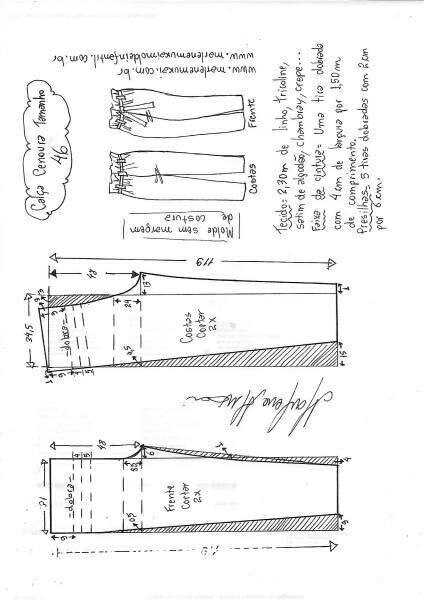 Calça Cenoura Tamanho
46
www.marlenemukai.com.br
www.marlenemukaimoldeinfantil.com.br
Frente
Costas
Molde sem margem
de costura
Tecido: 2,30m de linho, tricoline,
satim de algodão, chambray, crepe...
Faixa da cintura: Uma tira dobrada
com 4cm de largura por 1,50m
de comprimento.
Presilhas: 5 tiras dobradas com 2cm
por 8cm.
119
48
34,5
-dobra-
6
4
5
24
13
Costas
Cortar
2x
1
15
Marlene Mukai
48
-dobra-
4
5
6
Frente
Cortar
2x
4
9
6